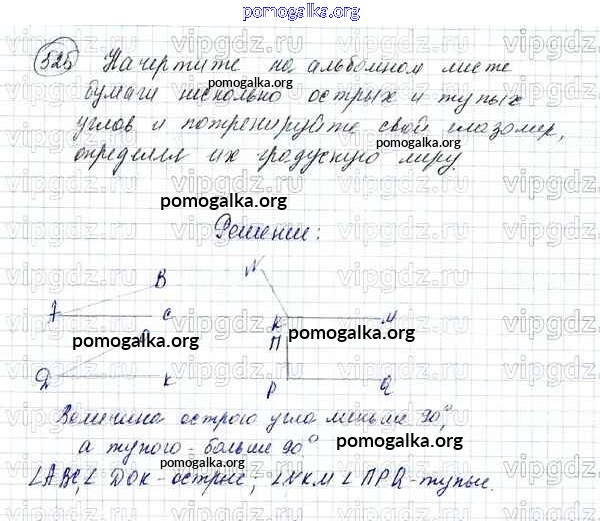 pomogalka.org
525 Начертите на альбомном листе
бумаги несколько острых и тупых
углов и потренируйте свой глазомер,
определяя их градусную меру.
pomogalka.org
pomogalka.org
Решение:
N
B
A C K M
O П
pomogalka.org pomogalka.org
Д K P Q
Величина острого угла меньше 90°,
а тупого - больше 90°
pomogalka.org
∠ABC, ∠ DOK - острые; ∠NKM ∠ ПPQ - тупые.
pomogalka.org